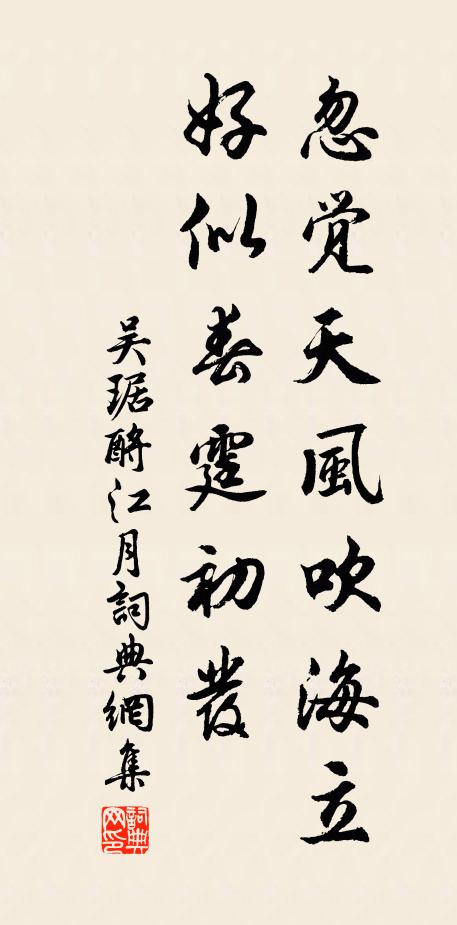 忽觉天風吹海立
好似春霆初發
吴琚酹江月詞典網集
詞典网印